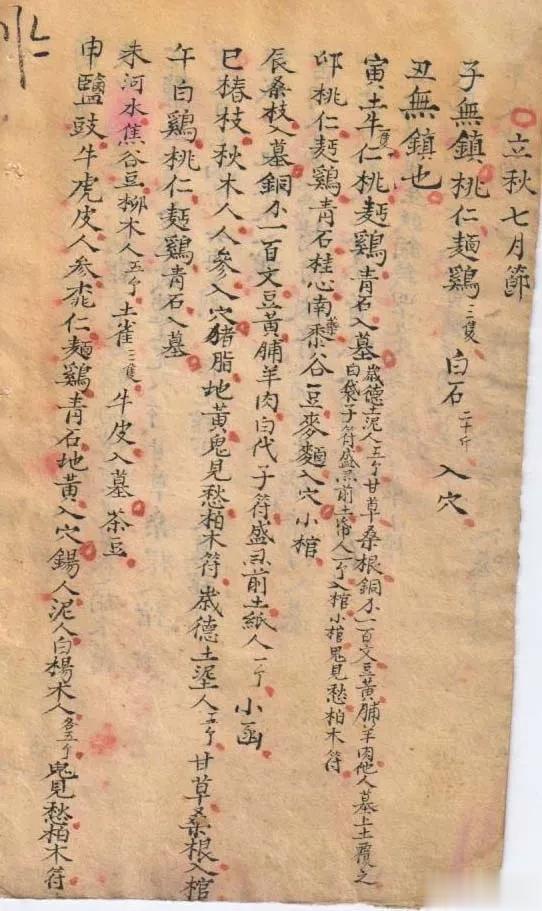 立秋七月節
子無鎮桃仁麺鷄三隻白石二十斤入穴
丑無鎮也
寅土牛一隻仁桃麺鷄青石入墓歲德土泥人五个甘草桑根銅小一百文豆黃脯羊肉他人墓上土覆之
白袋子符盛之前土帋人一个入棺小棺鬼見愁柏木符
卯桃仁麺鷄青石桂心南黍谷豆麥麵入穴小棺
辰桑枝入墓銅小一百文豆黃脯羊肉白代子符盛前土紙人一个小函
巳椿枝秋木人人參入穴猪脂地黃鬼見愁柏木符歲德土埿人五个甘草桑根入棺
午白鷄桃仁麺鷄青石入墓
未河水焦谷豆柳木人五个土雀三隻牛皮入墓茶豆
申鹽豉牛虎皮人參桃仁麵鷄青石地黃入穴錫人泥人白楊木人各五个鬼見愁柏木符